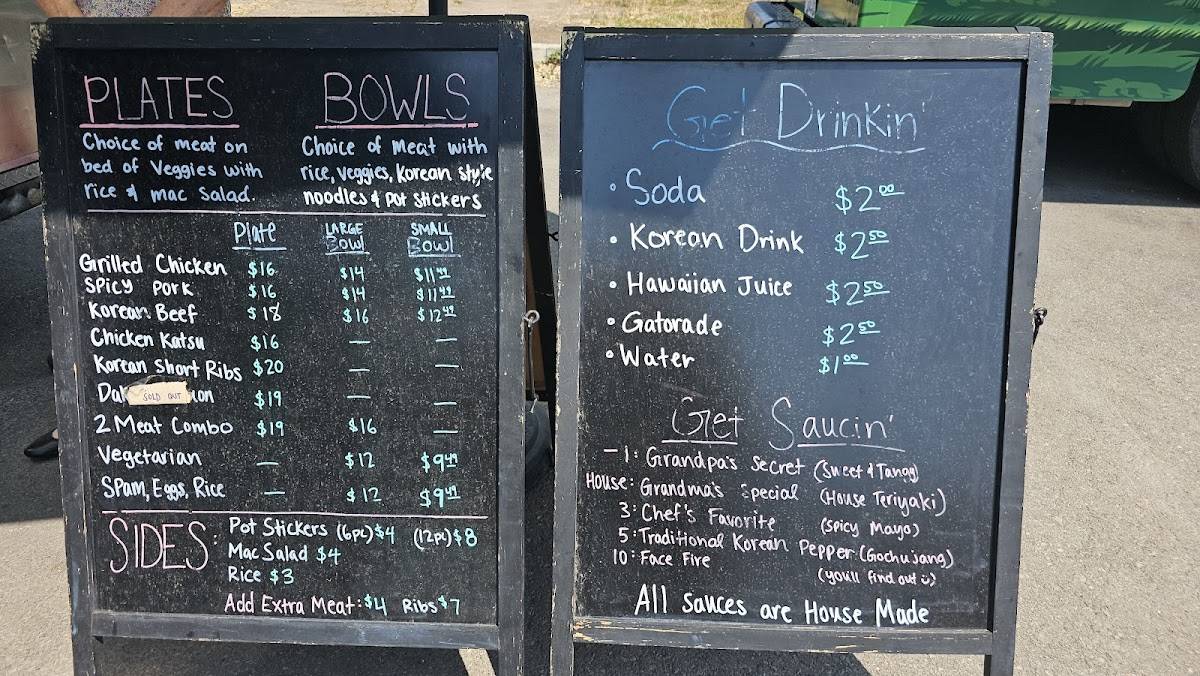 PLATES
Choice of meat on
bed of Veggies with
rice & mac Salad.
BOWLS
Choice of Meat with
rice, veggies, Korean style
noodles & Pot Stickers
Plate LARGE Bowl SMALL Bowl
Grilled Chicken $16 $14 $11.99
Spicy Pork $16 $14 $11.99
Korean Beef $18 $16 $12.99
Chicken Katsu $16 — —
Korean Short Ribs $20 — —
SOLD OUT $19 — —
2 Meat Combo $19 $16 —
Vegetarian — $12 $9.49
Spam, Eggs, Rice — $12 $9.49
SIDES: Pot Stickers (6pc) $4 (12pc) $8
Mac Salad $4
Rice $3
Add Extra Meat: $4 Ribs $7
Get Drinkin'
• Soda $2.00
• Korean Drink $2.50
• Hawaiian Juice $2.50
• Gatorade $2.50
• Water $1.00
Get Saucin'
-1: Grandpa's Secret (Sweet & Tangy)
House: Grandma's Special (House Teriyaki)
3: Chef's Favorite (Spicy Mayo)
5: Traditional Korean Pepper (Gochujang)
10: Face Fire (you'll find out ü)
All Sauces are House Made